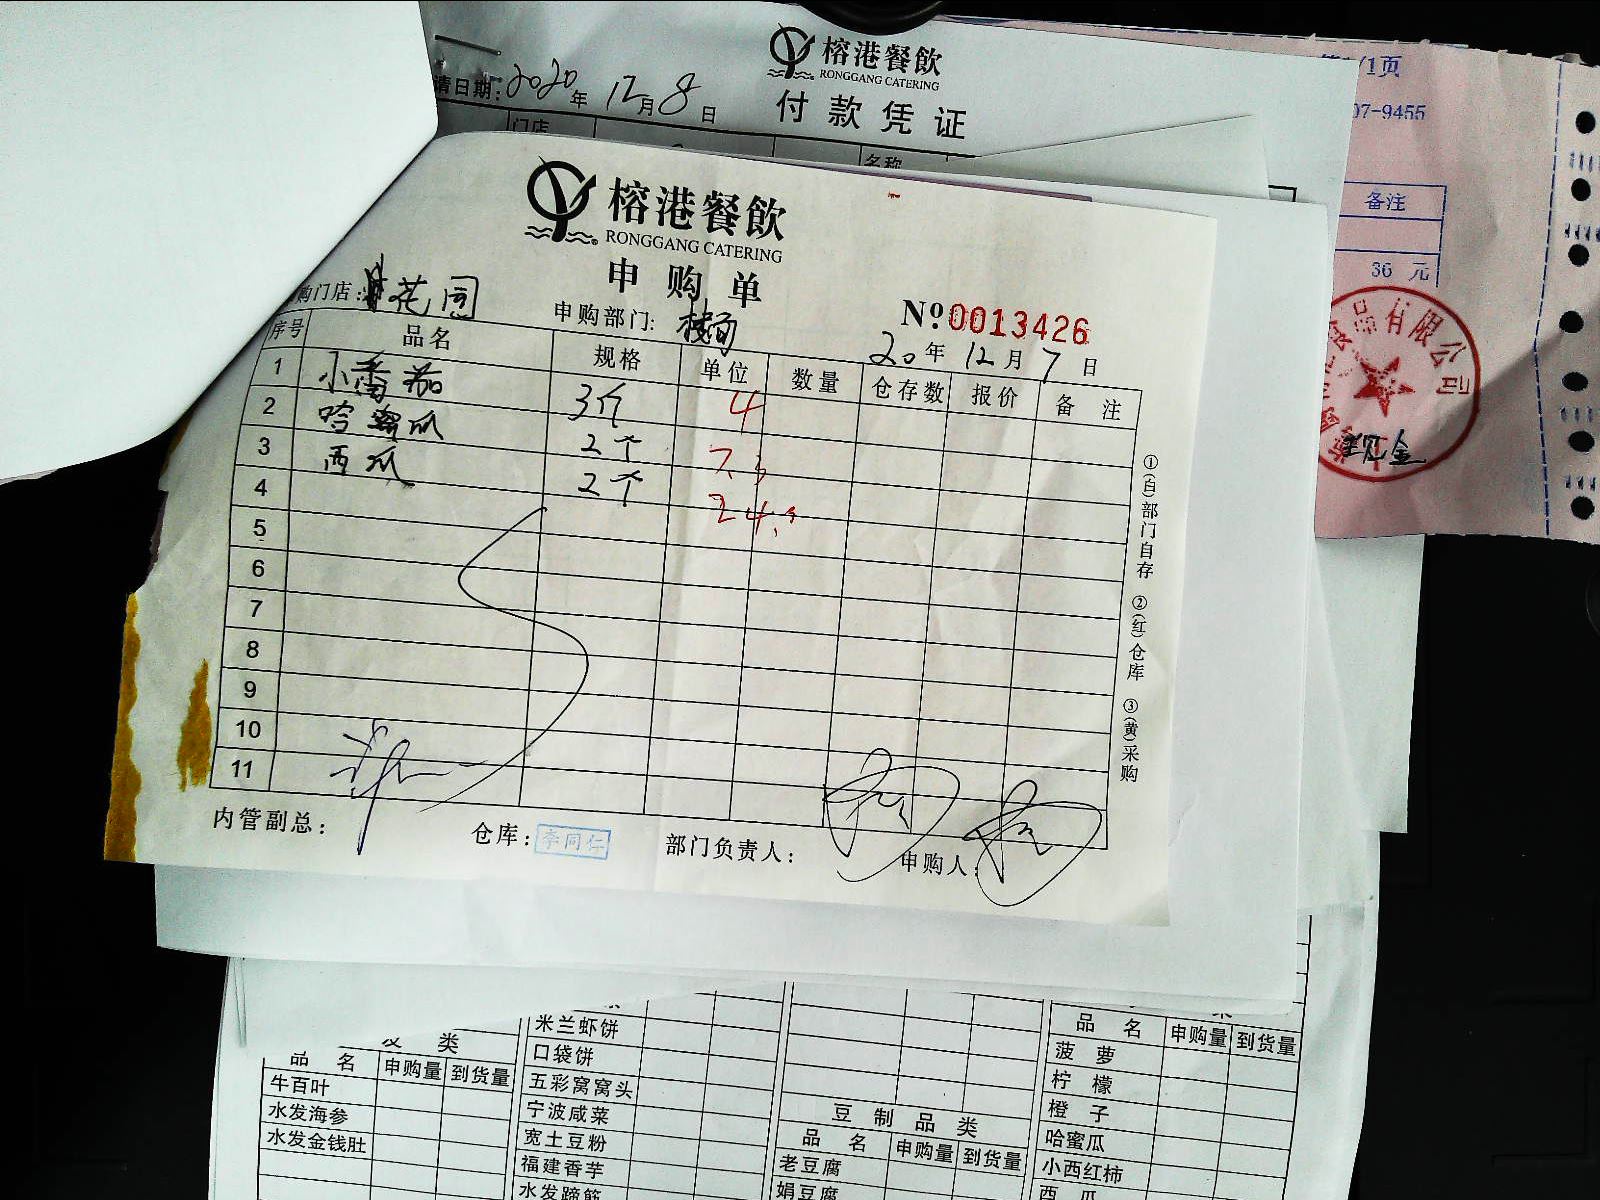 榕港餐飲
RONGGANG CATERING
付款凭证
请日期:2020年12月8日
门店
名称
/1页
07-9455
备注
36 元
食品有限公司
榕港餐飲
RONGGANG CATERING
申购单
购门店: 花园
申购部门: 楼面
No 0013426
20年12月7日
序号 品名 规格 单位 数量 仓存数 报价 备注
1 小番茄 3斤 4
2 哈蜜瓜 2个 7.3
3 西瓜 2个 24.9
4
5
6
7
8
9
10
11
①(白)部门自存 ②(红)仓库 ③(黄)采购
内管副总: 仓库: 李同仁 部门负责人: 申购人:
发类
品名 申购量 到货量
牛百叶
水发海参
水发金钱肚
米兰虾饼
口袋饼
五彩窝窝头
宁波咸菜
宽土豆粉
福建香芋
水发蹄筋
豆制品类
品名 申购量 到货量
老豆腐
娟豆腐
品名 申购量 到货量
菠萝
柠檬
橙子
哈蜜瓜
小西红柿
西瓜